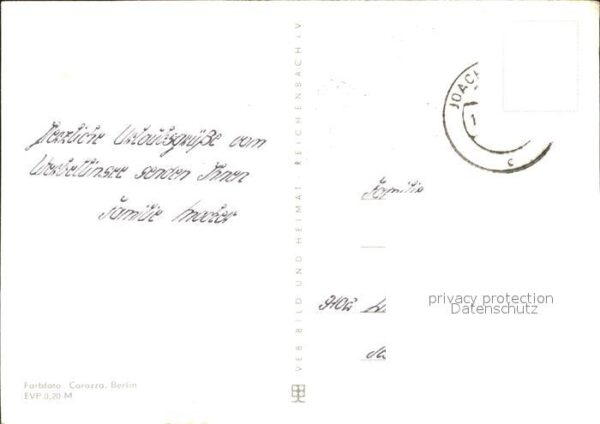 Herzliche Urlaubsgrüße vom
Werbellinsee senden Ihnen
Familie
Farbfoto: Carozza, Berlin
EVP 0,20 M
VEB BILD UND HEIMAT REICHENBACH i.V
JOACH
c
Familie
privacy protection
Datenschutz